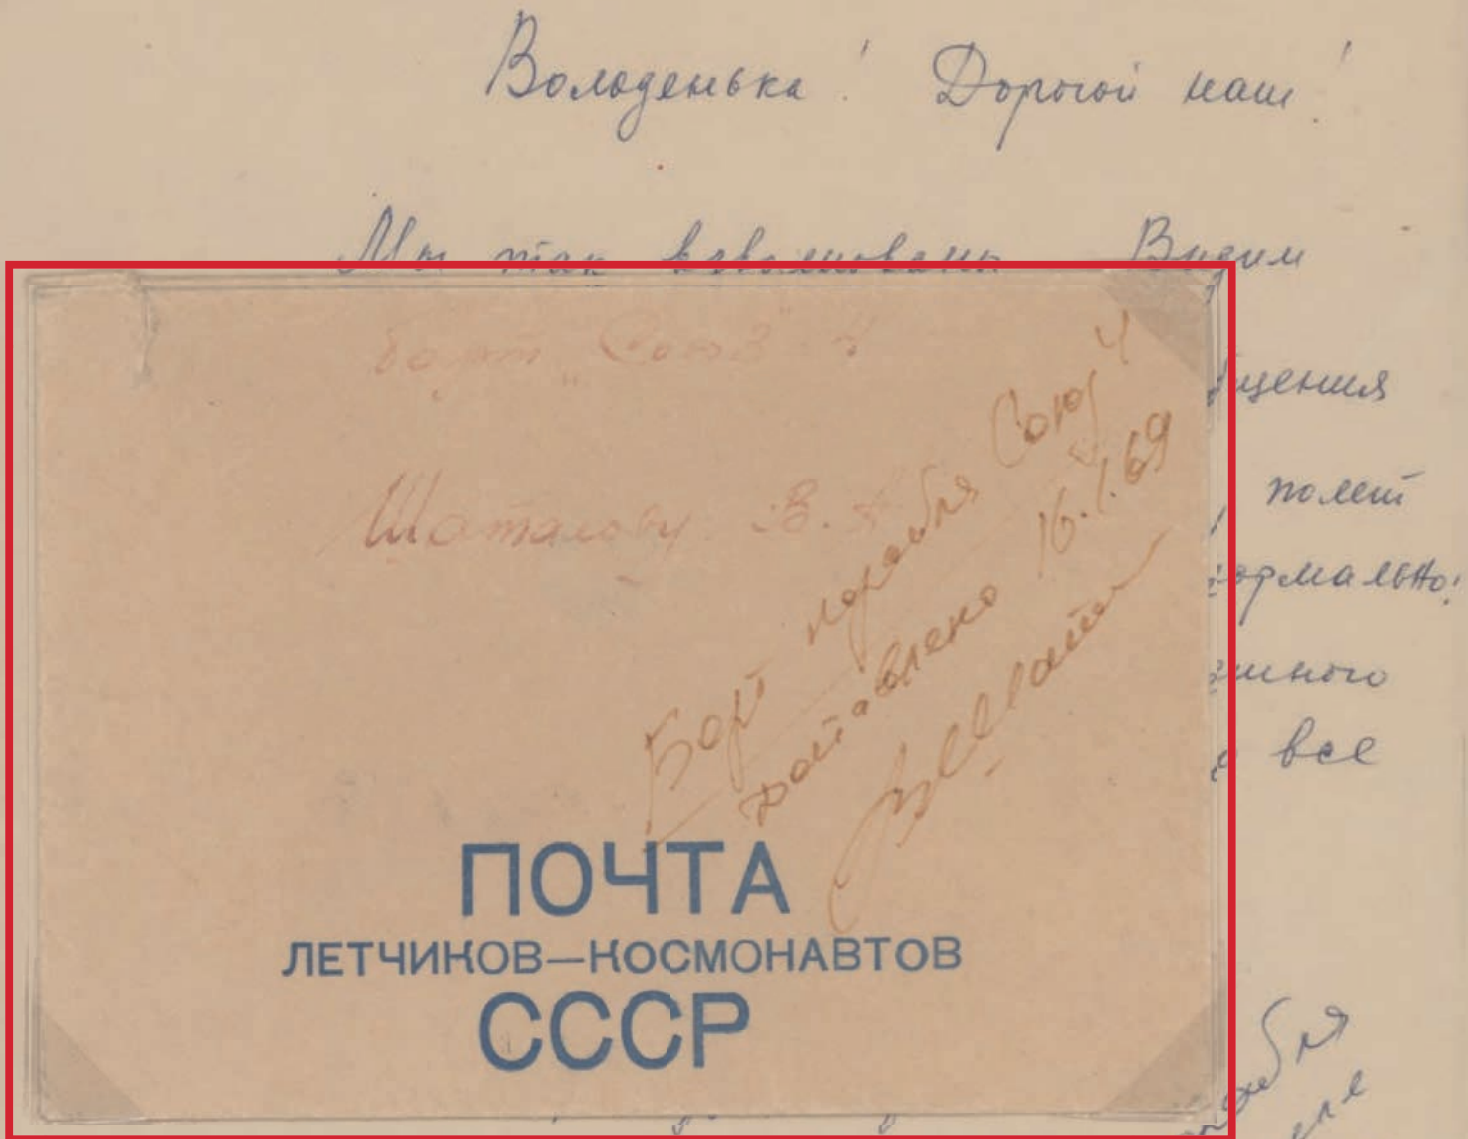 Володенька! Дорогой наш!
Мы так взволнованы Видим
щения
полет
ормально!
шного
все
Борт „Союз" 4
Шаталову В. А.
Борт корабля Союз 4
доставлено 16.1.69
ПОЧТА
ЛЕТЧИКОВ—КОСМОНАВТОВ
СССР